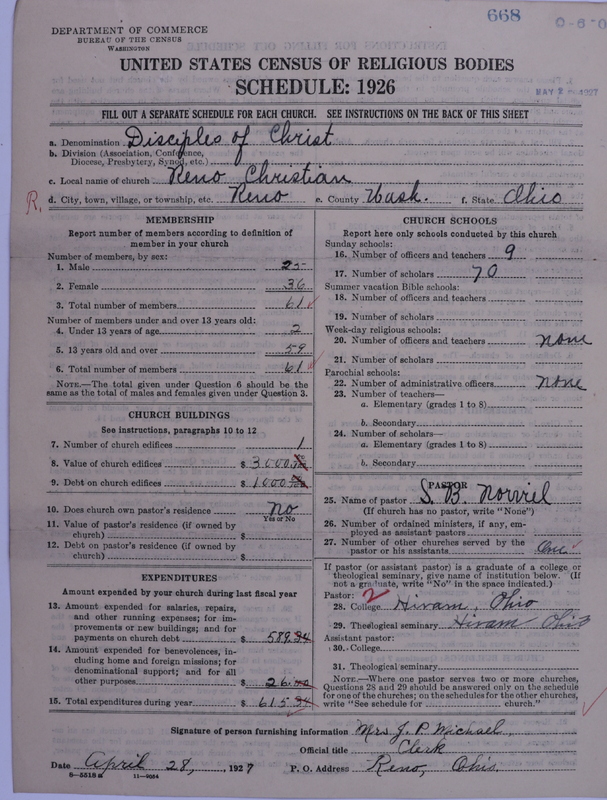 668
DEPARTMENT OF COMMERCE
BUREAU OF THE CENSUS
WASHINGTON
UNITED STATES CENSUS OF RELIGIOUS BODIES
SCHEDULE: 1926
MAY 2 1927
FILL OUT A SEPARATE SCHEDULE FOR EACH CHURCH. SEE INSTRUCTIONS ON THE BACK OF THIS SHEET
a. Denomination Disciples of Christ
b. Division (Association, Conference,
Diocese, Presbytery, Synod, etc.)
c. Local name of church Reno Christian
R. d. City, town, village, or township, etc. Reno e. County Wash. f. State Ohio
MEMBERSHIP
Report number of members according to definition of
member in your church
Number of members, by sex:
1. Male 25
2. Female 36
3. Total number of members 61
Number of members under and over 13 years old:
4. Under 13 years of age 2
5. 13 years old and over 59
6. Total number of members 61
NOTE.—The total given under Question 6 should be
same as the total of males and females given under Question 3.
CHURCH BUILDINGS
See instructions, paragraphs 10 to 12
7. Number of church edifices 1
8. Value of church edifices $ 3000
9. Debt on church edifices $ 1000
10. Does church own pastor's residence no
Yes or No
11. Value of pastor's residence (if owned by
church) $
12. Debt on pastor's residence (if owned by
church) $
EXPENDITURES
Amount expended by your church during last fiscal year
13. Amount expended for salaries, repairs,
and other running expenses; for im-
provements or new buildings; and for
payments on church debt $ 589.94
14. Amount expended for benevolences, in-
cluding home and foreign missions; for
denominational support; and for all
other purposes $ 26.00
15. Total expenditures during year $ 615.94
CHURCH SCHOOLS
Report here only schools conducted by this church
Sunday schools:
16. Number of officers and teachers 9
17. Number of scholars 70
Summer vacation Bible schools:
18. Number of officers and teachers
19. Number of scholars
Week-day religious schools:
20. Number of officers and teachers none
21. Number of scholars
Parochial schools:
22. Number of administrative officers none
23. Number of teachers—
a. Elementary (grades 1 to 8)
b. Secondary
24. Number of scholars—
a. Elementary (grades 1 to 8)
b. Secondary
PASTOR
25. Name of pastor S. B. Norviel
(If church has no pastor, write "None")
26. Number of ordained ministers, if any, em-
ployed as assistant pastors
27. Number of other churches served by the
pastor or his assistants One
If pastor (or assistant pastor) is a graduate of a college or
theological seminary, give name of institution below. (If
not a graduate, write "No" in the space indicated.)
Pastor: 2
28. College Hiram, Ohio
29. Theological seminary Hiram Ohio
Assistant pastor:
30. College
31. Theological seminary
NOTE.—Where one pastor serves two or more churches,
Questions 28 and 29 should be answered only on the schedule
for one of the churches; on the schedules for the other churches,
write "See schedule for church."
Signature of person furnishing information Mrs J. P. Michael
Official title Clerk
Date April 28, 1927 P. O. Address Reno, Ohio
8—5518a 11—9054